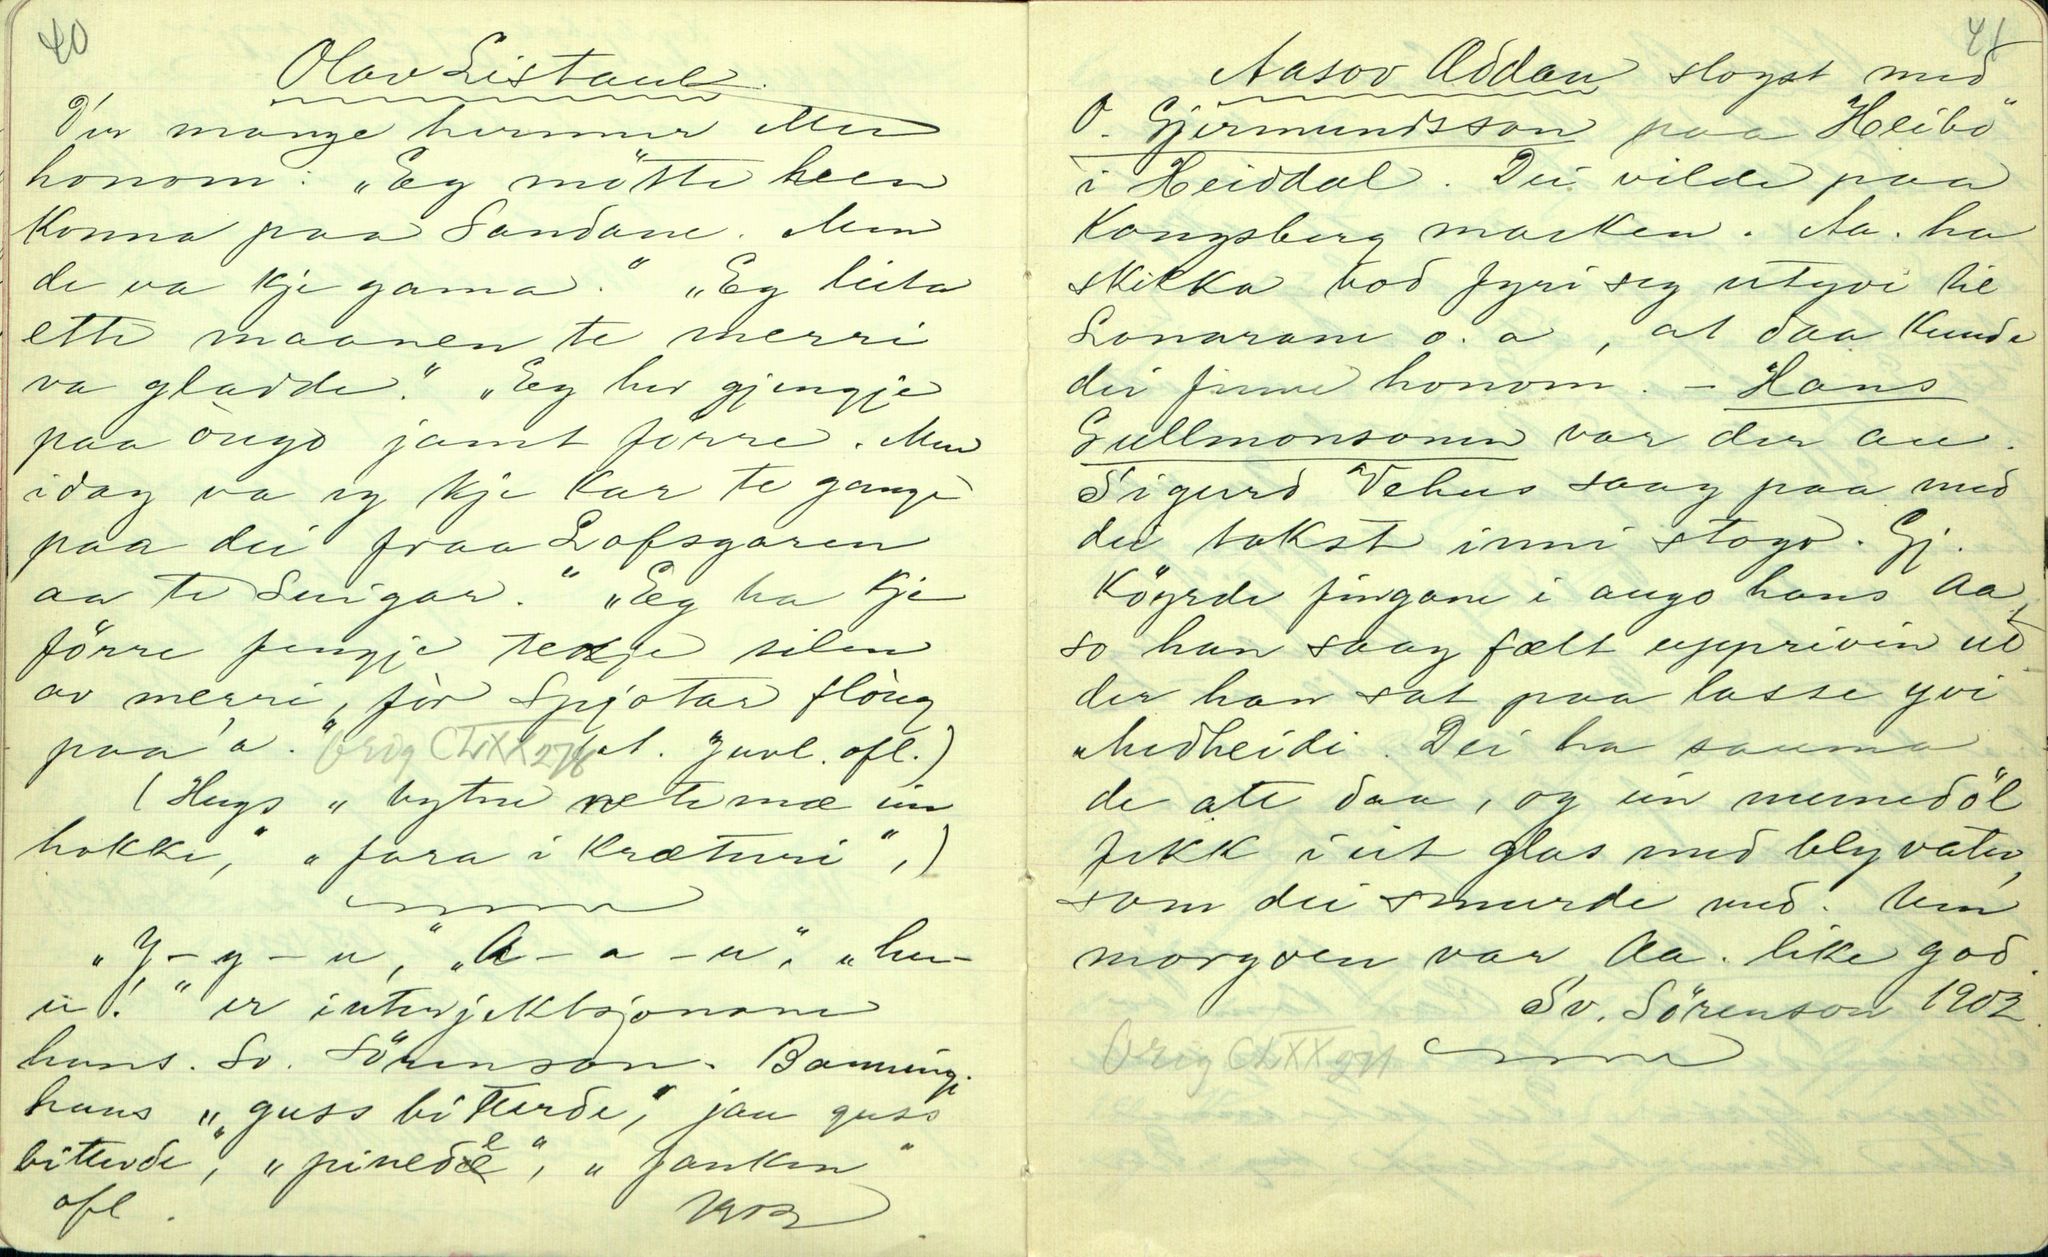 40
Olav Listaul.
D'er mange hermur ette
honom: "Eg møtte heen
Konna paa Sandane. Men
de va kje gama." "Eg leita
ette maanen te merri
va gladde." "Eg hev gjengje
paa öugo jamt förre. Men
idag va eg kje kar te gange
paa dei fraa Lofsgaren
aa te Svigar." "Eg ha kje
förre fengje tekje silen
av merri, för Spjotar flöug
paa 'a." Orig CLXX 276 (at. Juvl. ofl.)
(Hugs "bytne rete mæ ein
hokke," "fara i Kræturi",)
"Y-y-u," "A-a-u", "hu-
u!" er interjektsjonane
hans. Sv. Sörenson. Banningi
hans "guss bitterde," jau guss
bitterde", "pinedæ", "fanken"
ofl. 1902
41
Aasov Oddan slogst med
O. Gjermundsson paa Heibö
i Heiddal. Dei vilde paa
Kongsberg marken. Aa. ha
skikka bod fyri seg utyvi til
Lonarane o. a, at daa kunde
dei finne honom. - Hans
Gullmonsonen var der au.
Sigurd Vehus saag paa med
dei tokst inni stogo. Gj.
Köyrde fingane i augo hans Aa,
so han saag fælt upprivin ut
der han sat paa lasse yvi
Medheidi. Dei ha sauma
de atte daa, og ein memedöl
fekk i eit glas med blyvatn,
som dei smurde med. Um
morgoen var Aa. like god.
Sv. Sörenson 1902.
Orig CLXX 271